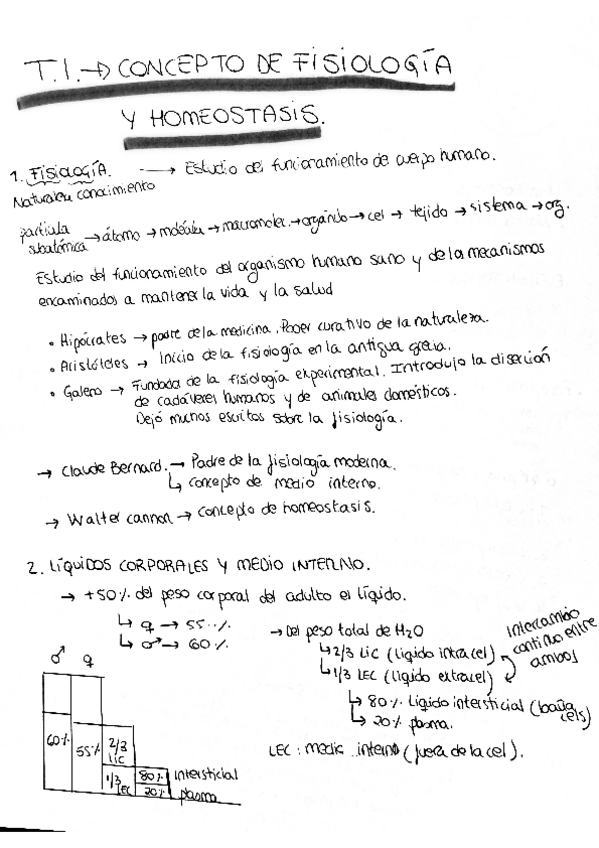 T.1. → CONCEPTO DE FISIOLOGÍA
Y HOMEOSTASIS.
1. FISIOLOGÍA. → Estudio del funcionamiento de cuerpo humano.
Naturaleza conocimiento
partícula subatómica → átomo → molécula → macromolec. → orgánulo → cel → tejido → sistema → org.
Estudio del funcionamiento del organismo humano sano y de la mecanismos
encaminados a mantener la vida y la salud
• Hipócrates → padre de la medicina. Poder curativo de la naturaleza.
• Aristóteles → Inicio de la fisiología en la antigua grecia.
• Galeno → Fundador de la fisiología experimental. Introdujo la disección
de cadáveres humanos y de animales domésticos.
Dejó muchos escritos sobre la fisiología.
→ Claude Bernard. → Padre de la fisiología moderna.
↳ concepto de medio interno.
→ Walter cannon → concepto de homeostasis.
2. LÍQUIDOS CORPORALES Y MEDIO INTERNO.
→ +50% del peso corporal del adulto el líquido.
↳ ♀ → 55%
↳ ♂ → 60%
→ Del peso total de H2O
↳ 2/3 LIC (líquido intracel)
↳ 1/3 LEC (líquido extracel)
Intercambio
continuo entre
ambos
↳ 80% líquido intersticial (baña cels)
↳ 20% plasma.
LEC: medio interno (fuera de la cel).
♂ ♀
60% 55% 2/3 LIC
1/3 LEC 80% intersticial
20% plasma